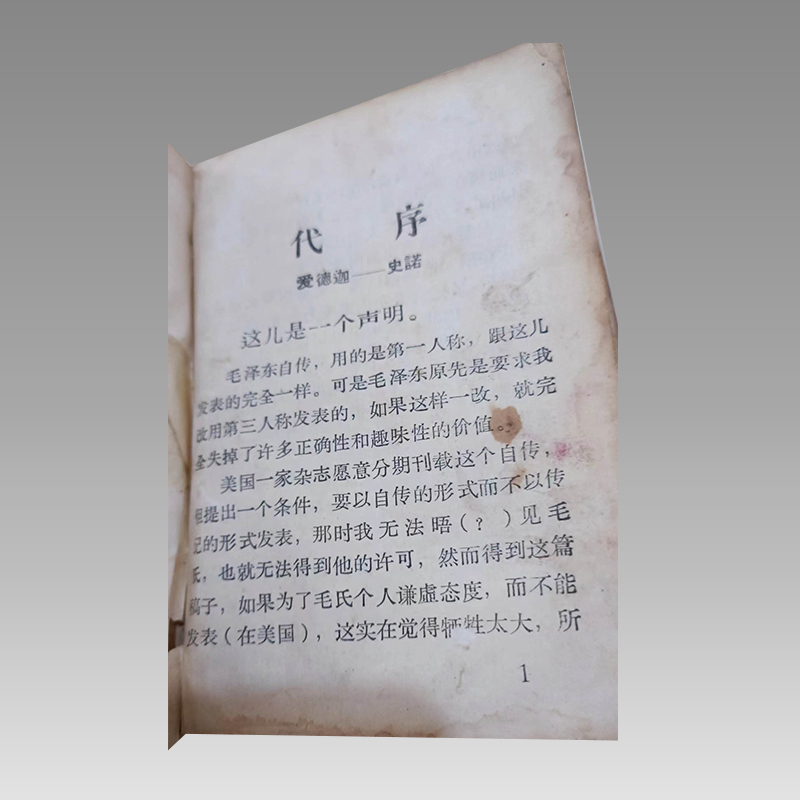 代 序
爱德迦——史諾
这儿是一个声明。
毛泽东自传，用的是第一人称，跟这儿
发表的完全一样。可是毛泽东原先是要求我
改用第三人称发表的，如果这样一改，就完
全失掉了许多正确性和趣味性的价值。
美国一家杂志愿意分期刊载这个自传，
但提出一个条件，要以自传的形式而不以传
记的形式发表，那时我无法晤（？）见毛
氏，也就无法得到他的许可，然而得到这篇
稿子，如果为了毛氏个人谦虚态度，而不能
发表（在美国），这实在觉得牺牲太大，所
1